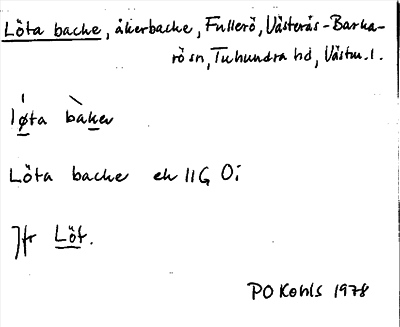 Löta backe, åkerbacke, Fullerö, Västerås-Barka-
rö sn, Tuhundra hd, Västm. l.
løta bàken
Löta backe ek 11G 0i
Jfr Löt.
PO Kohls 1978